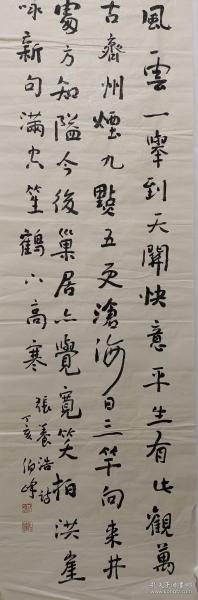 風雲一舉到天關快意平生有此觀萬
古齊州煙九點五更滄海日三竿向來井
處方知隘今後巢居亦覺寬笑拍洪崖
咏新句滿空笙鶴下高寒
張養浩詩
丁亥伯峰